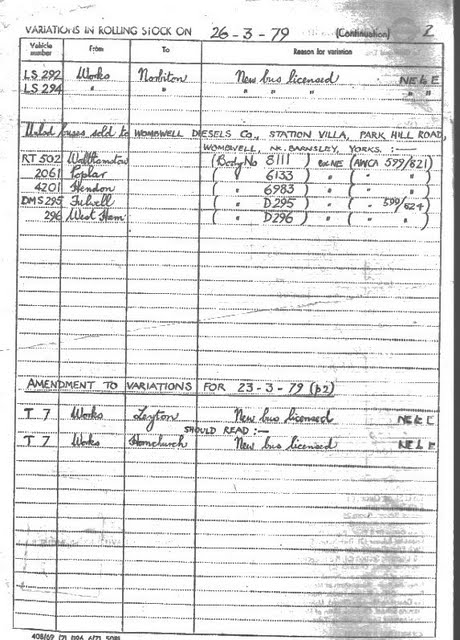 VARIATIONS IN ROLLING STOCK ON 26-3-79 (Continuation) 2
Vehicle number From To Reason for variation
LS 292 Works Norbiton New bus licensed NE & E
LS 294 " " " " " " "
Unlicd buses sold to WOMBWELL DIESELS Co., STATION VILLA, PARK HILL ROAD,
WOMBWELL, NR. BARNSLEY, YORKS. :—
RT 502 Walthamstow (Body No 8111) (AWCA 599/821)
2061 Poplar ( " 6133 ) " ( " " )
4201 Hendon ( " 6983 ) " ( " " )
DMS 295 Fulwell ( " D295 ) " ( " 599/824 )
296 West Ham ( " D296 ) " ( " " )
AMENDMENT TO VARIATIONS FOR 23-3-79 (p2)
T 7 Works Leyton New bus licensed NE & E
SHOULD READ :—
T 7 Works Hornchurch New bus licensed NE & E